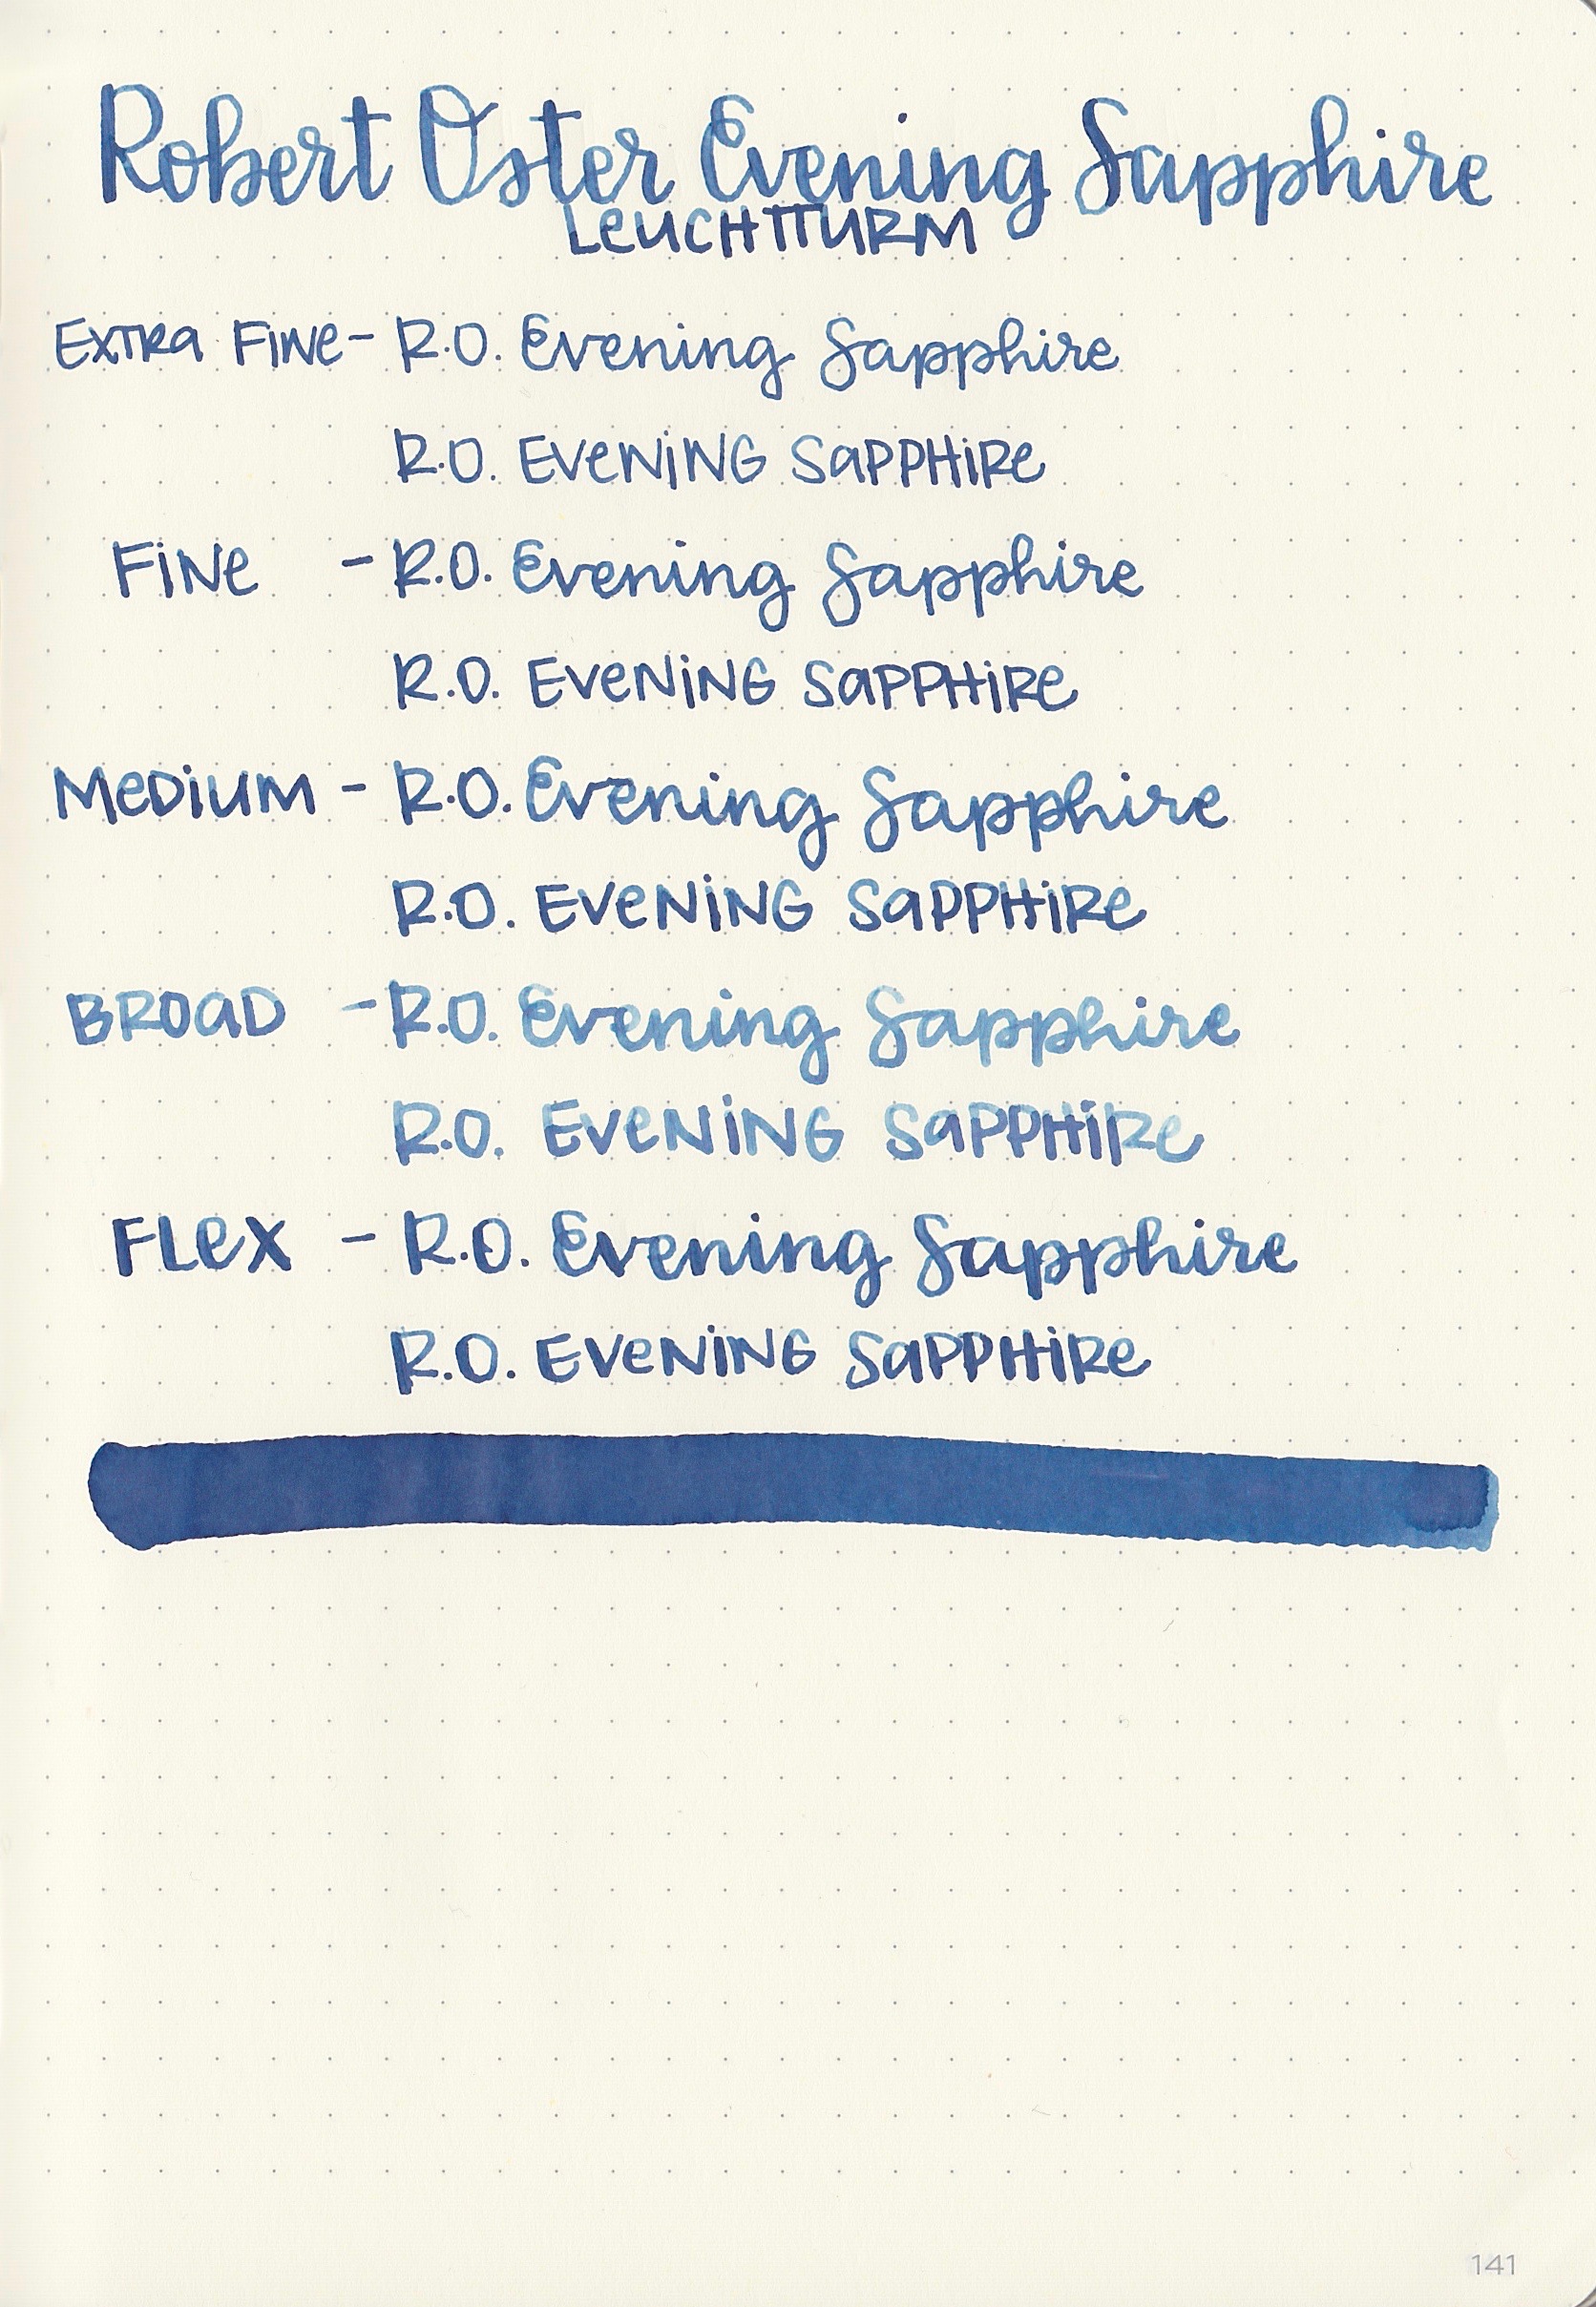 Robert Oster Evening Sapphire
LEUCHTTURM
EXTRA FINE - R.O. Evening Sapphire
R.O. EVENING SAPPHIRE
FINE - R.O. Evening Sapphire
R.O. EVENING SAPPHIRE
MEDIUM - R.O. Evening Sapphire
R.O. EVENING SAPPHIRE
BROAD - R.O. Evening Sapphire
R.O. EVENING SAPPHIRE
FLEX - R.O. Evening Sapphire
R.O. EVENING SAPPHIRE
141